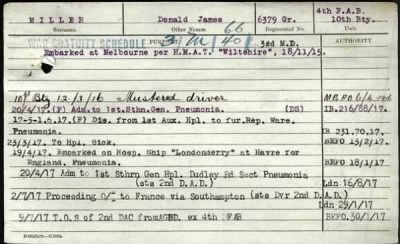 MILLER Donald James 66 6379 Gr. 4th F.A.B. 10th Bty.
Surname. Other Names
WAR GRATUITY SCHEDULE 3/M/40 3rd M.D.
Embarked at Melbourne per H.M.A.T. "Wiltshire", 18/11/15.
10th Bty 12/3/16 Mustered driver
20/4/17.(F) Adm.to 1st.Sthn.Gen. Pneumonia. (DS) IB.216/88/17.
17-5-1.6.17.(F) Dis. from 1st Aux. Hpl. to fur.Rep. Ware.
Pneumonia. IB 231.70.17.
23/3/17. To Hpl. Sick. BEFO 13/2/17
19/4/17. Embarked on Hosp. Ship "Londonderry" at Havre for
England, Pneumonia. BEFO 18/1/17
20/4/17 Adm to 1st Sthrn Gen Hpl. Dudley Rd Sect Pneumonia
(sts 2nd D.A.D.) Ldn 16/8/17
2/7/17 Proceeding O/S to France via Southampton (sts Dvr 2nd D.A.D.)
Ldn 29/1/17
9/7/17 T.O.S of 2nd DAC from AGBD. ex 4th FAB BEFO.30/1/17